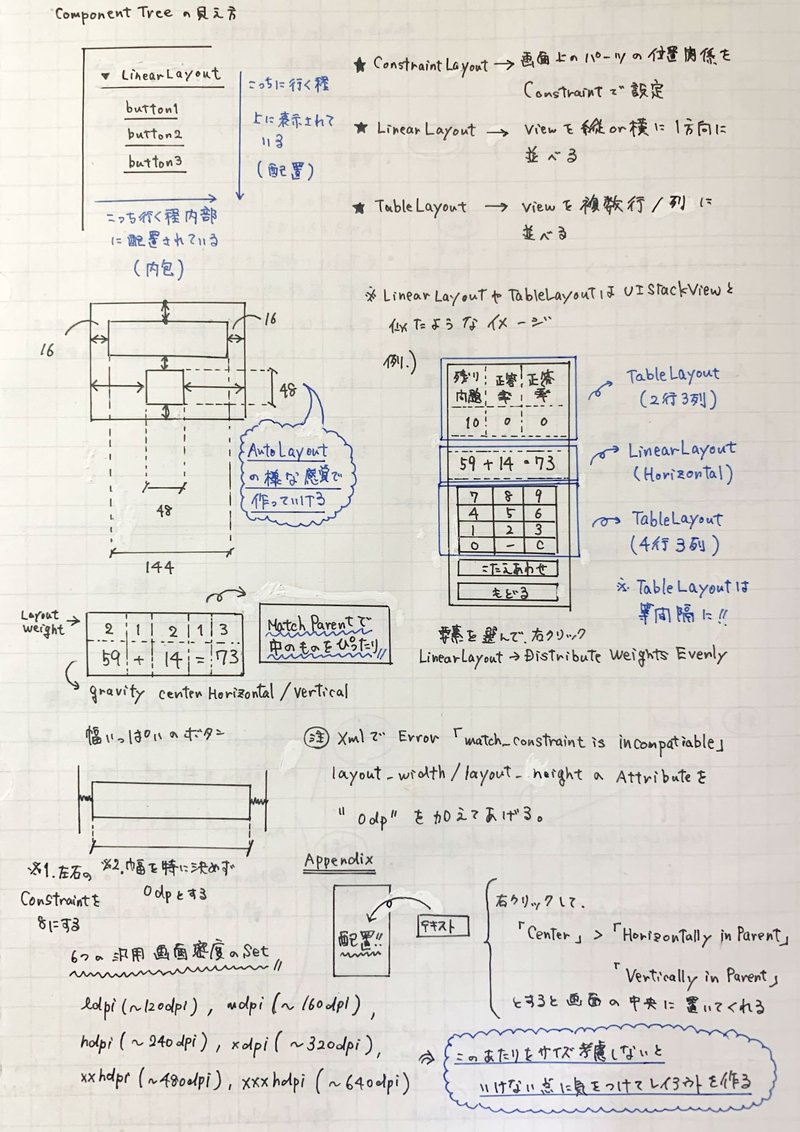 Component Tree の見え方
▼ LinearLayout
button1
button2
button3
こっちに行く程
上に表示されて
いる
(配置)
こっち行く程内部
に配置されている
(内包)
★ ConstraintLayout → 画面上のパーツの位置関係を
Constraintで設定
★ LinearLayout → viewを縦or横に1方向に
並べる
★ TableLayout → viewを複数行/列に
並べる
※ LinearLayoutやTableLayoutはUIStackViewと
似たようなイメージ
16
16
48
48
144
AutoLayout
の様な感覚で
作っていける
例.)
残り 正答 正答
問題 率 率
10 0 0
59 + 14 = 73
7 8 9
4 5 6
1 2 3
0 - C
こたえあわせ
もどる
TableLayout
(2行3列)
LinearLayout
(Horizontal)
TableLayout
(4行3列)
※ TableLayoutは
等間隔に!!
要素を選んで、右クリック
LinearLayout → Distribute Weights Evenly
Layout
weight
2 1 2 1 3
59 + 14 = 73
Match Parentで
中のものをぴったり!!
gravity center Horizontal/Vertical
幅いっぱいのボタン
※1.左右の
Constraintを
8にする
※2.幅を特に決めず
0dpとする
注 Xmlで Error 「match_constraint is incompatiable」
layout_width/layout_height の Attributeを
"0dp" を加えてあげる。
Appendix
配置!!
テキスト
右クリックして、
「Center」>「Horizontally in Parent」
「Vertically in Parent」
とすると画面の中央に置いてくれる
6つの汎用画面密度のSet
ldpi (~120dpi), mdpi (~160dpi),
hdpi (~240dpi), xdpi (~320dpi),
xxhdpi (~480dpi), xxxhdpi (~640dpi)
⇒ このあたりをサイズ考慮しないと
いけない点に気をつけてレイアウトを作る